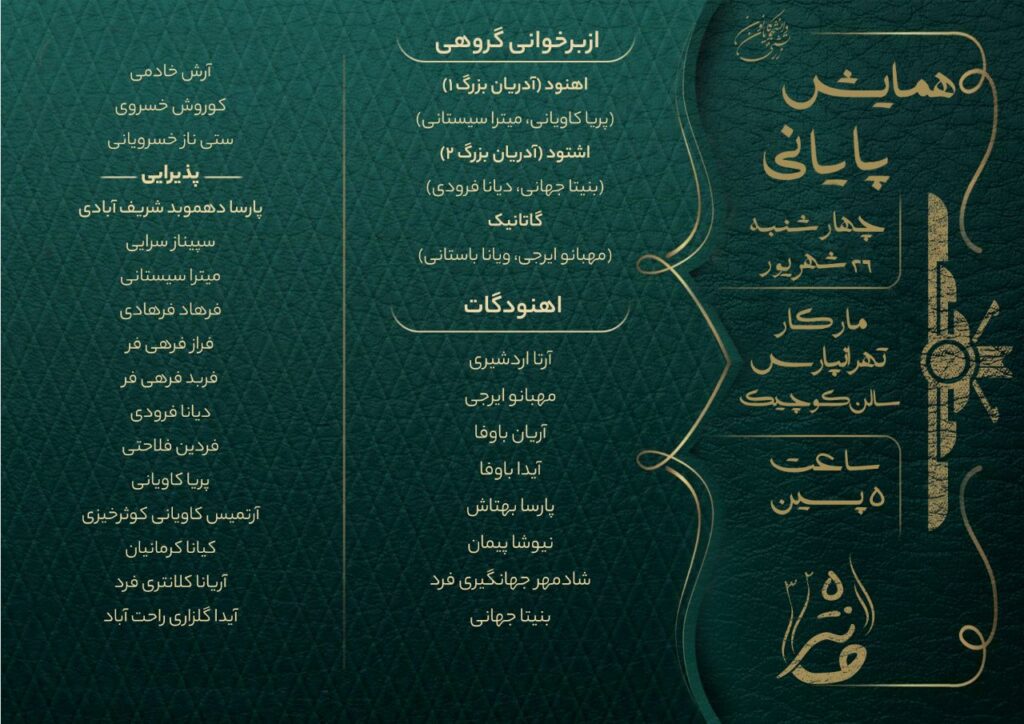 همایش
پایانی
چهارشنبه
۲۶ شهریور
مارکار
تهرانپارس
سالن کوچیک
ساعت
۵ پسین
مانتره
۵
۳۲
ازبرخوانی گروهی
اهنود (آدریان بزرگ ۱)
(پریا کاویانی، میترا سیستانی)
اشتود (آدریان بزرگ ۲)
(بنیتا جهانی، دیانا فرودی)
گاتانیک
(مهبانو ایرجی، ویانا باستانی)
اهنودگات
آرتا اردشیری
مهبانو ایرجی
آریان باوفا
آیدا باوفا
پارسا بهتاش
نیوشا پیمان
شادمهر جهانگیری فرد
بنیتا جهانی
آرش خادمی
کوروش خسروی
ستی ناز خسرویانی
پذیرایی
پارسا دهموبد شریف آبادی
سپیناز سرایی
میترا سیستانی
فرهاد فرهادی
فراز فرهی فر
فربد فرهی فر
دیانا فرودی
فردین فلاحتی
پریا کاویانی
آرتمیس کاویانی کوثرخیزی
کیانا کرمانیان
آریانا کلانتری فرد
آیدا گلزاری راحت آباد